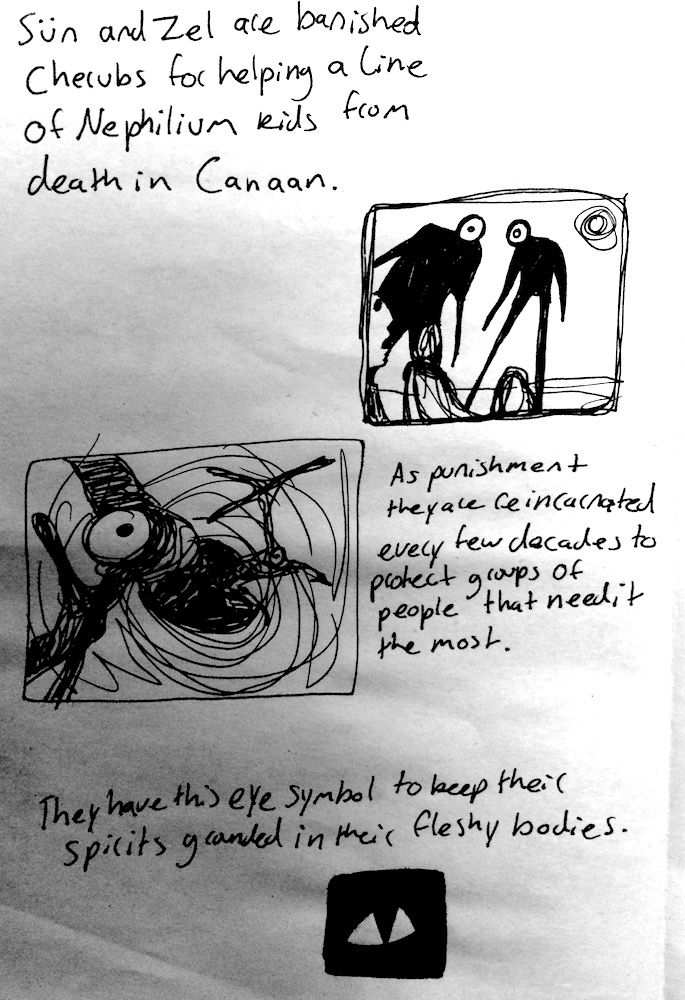 Sün and Zel are banished
Cherubs for helping a line
of Nephilium kids from
death in Canaan.
As punishment
they are reincarnated
every few decades to
protect groups of
people that need it
the most.
They have this eye symbol to keep their
spirits grounded in their fleshy bodies.